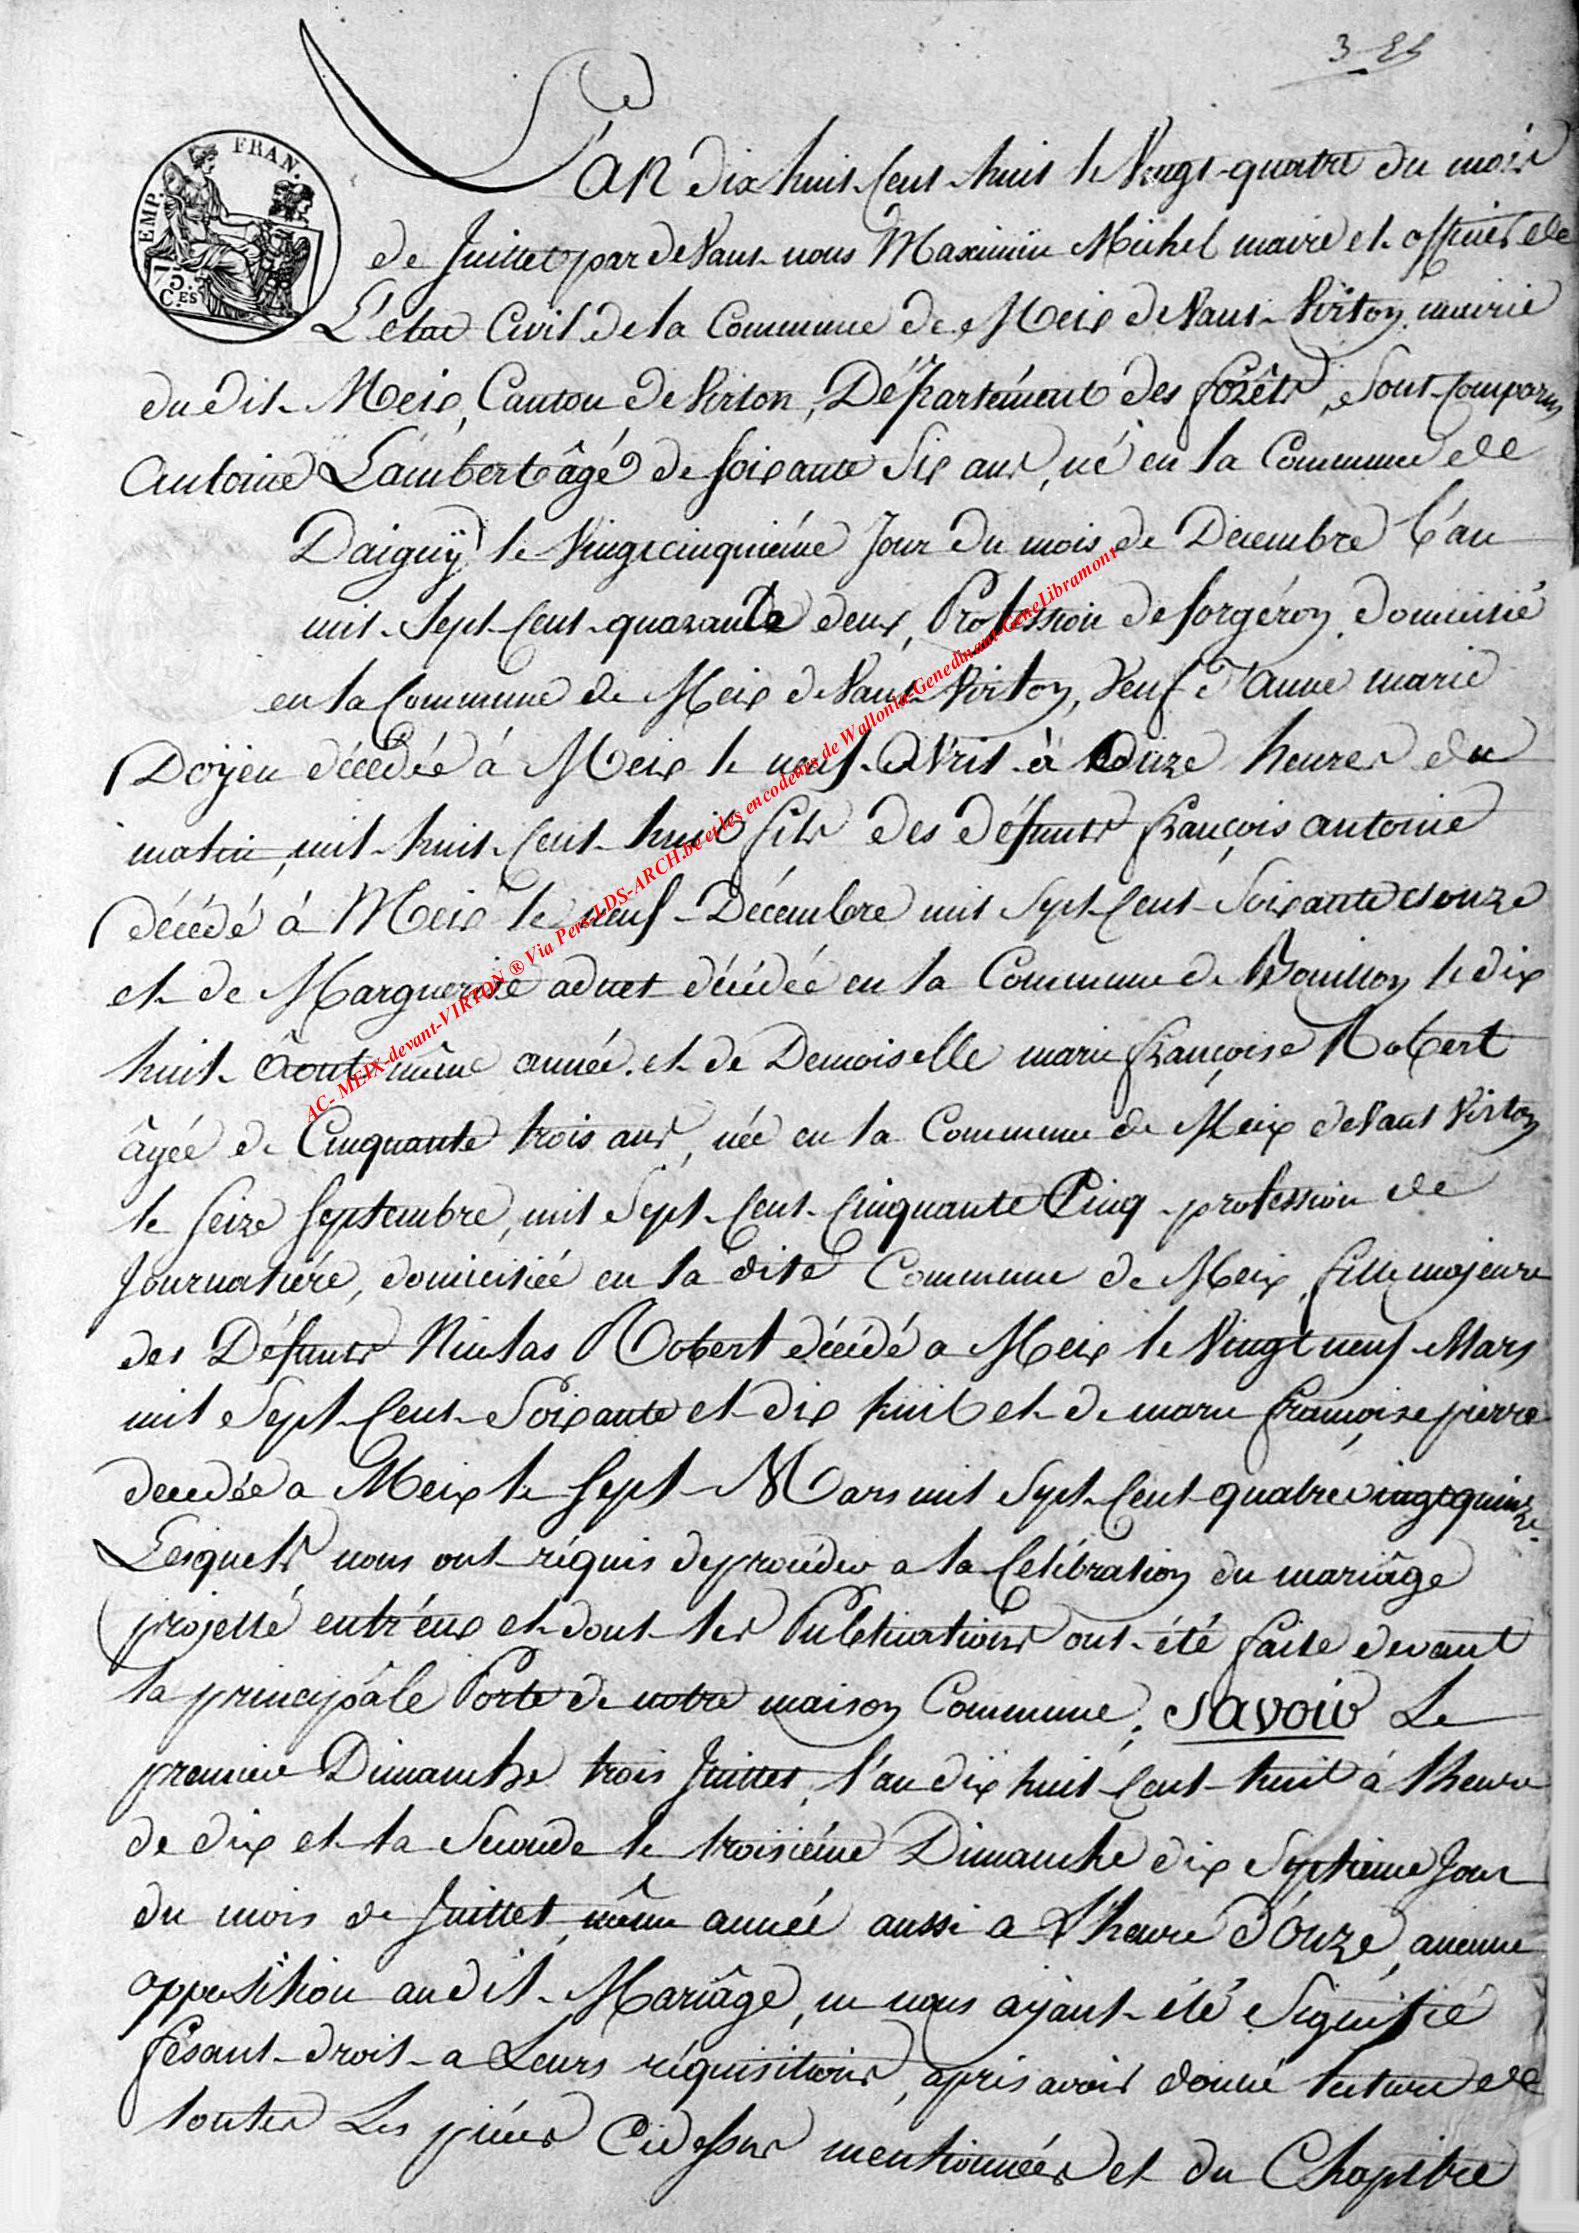 3 
EMP. FRAN.
75 C.ES
L'AN dix huit Cent huit le Vingt-quatre du mois
de Juillet par deVant nous Maximin Michel maire et officier de
L'etat Civil de la Commune de Meix deVant Virton, mairie
du dit Meix, Canton de Virton, Département des forêts, Sont Comparus
Antoine Lambert âgé de soixante Six ans, né en la Commune de
Daiguÿ le Vingtcinquiéme Jour du mois de Decembre l'an
mil Sept Cent quarante deux, Profession de forgéron, domicilié
en la Commune de Meix deVant Virton, Veuf d'anne marie
Doÿen décédée à Meix le neuf aVril à onze heures du
matin, mil huit Cent huit fils des défunts françois antoine
décédé à Meix le neuf Décembre mil Sept Cent Soixante et onze
et de Marguerite adnet décédée en la Commune de Bouillon le dix
huit Âout même année. et de Demoiselle marie françoise Robert
âgée de Cinquante trois ans, née en la Commune de Meix deVant Virton
le seize septembre, mil Sept Cent Cinquante Cinq profession de
Journaliére, domiciliée en la dite Commune de Meix, fille majeure
des Défunts Nicolas Robert décédé a Meix le Vingt neuf Mars
mil Sept Cent Soixante et dix huit et de marie françoise pierre
decedée a Meix le sept Mars mil Sept Cent quatre vingt quinze.
Lesquels nous ont réquis de procéder a la Celébration du mariâge
projetté entr'éux et dont les Publications ont été faite devant
la principâle Porte de notre maison Commune, SAVOIR Le
premier Dimanche trois Juillet, l'an dix huit Cent huit à l'heure
de dix et la Seconde le troisiéme Dimanche dix Septieme Jour
du mois de Juillet, même année aussi a L'heure d'Onze, aucune
opposition au dit Mariâge, ne nous aÿant été Signifié
fesant droit a Leurs réquisitions, apris avoir donné lecture de
toutes Les piéces Cidessus mentionnées et du Chapitre
AC- MEIX-devant-VIRTON ® Via Pers-LDS-ARCH.be et les encodeurs de Wallonia-Genedinant-GeneLibramont